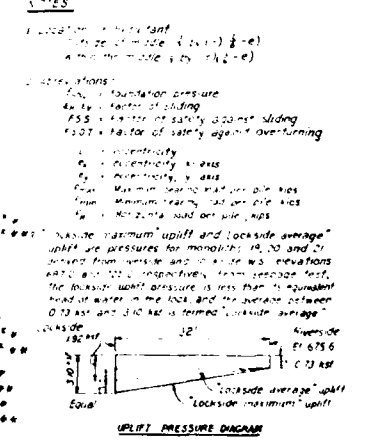 NOTES
1. Location of Resultant
Outside of middle ⅓ by (-) -e)
Within the middle ⅓ by -e)
2. Abbreviations:
= foundation pressure
= Factor of sliding
FSS = Factor of safety against sliding
FSOT = Factor of safety against overturning
e = eccentricity
ex = eccentricity, x axis
ey = eccentricity, y axis
Pmax = Maximum bearing load per pile, kips
Pmin = Minimum bearing load per pile, kips
PH = Horizontal load per pile, kips
** 
*** "Lockside maximum" uplift and "Lockside average"
uplift are pressures for monoliths 19, 20 and 21
derived from riverside and lockside w.s. elevations
respectively. From seepage test,
the lockside uplift pressure is less than its equivalent
head of water in the lock, and the average between
0.73 ksf and 3.10 ksf is termed "lockside average".
Lockside
32'
Riverside
1.92 ksf
El. 675.6
3.10 ksf
0.73 ksf
"Lockside average" uplift
"Lockside maximum" uplift
Equal
UPLIFT PRESSURE DIAGRAM